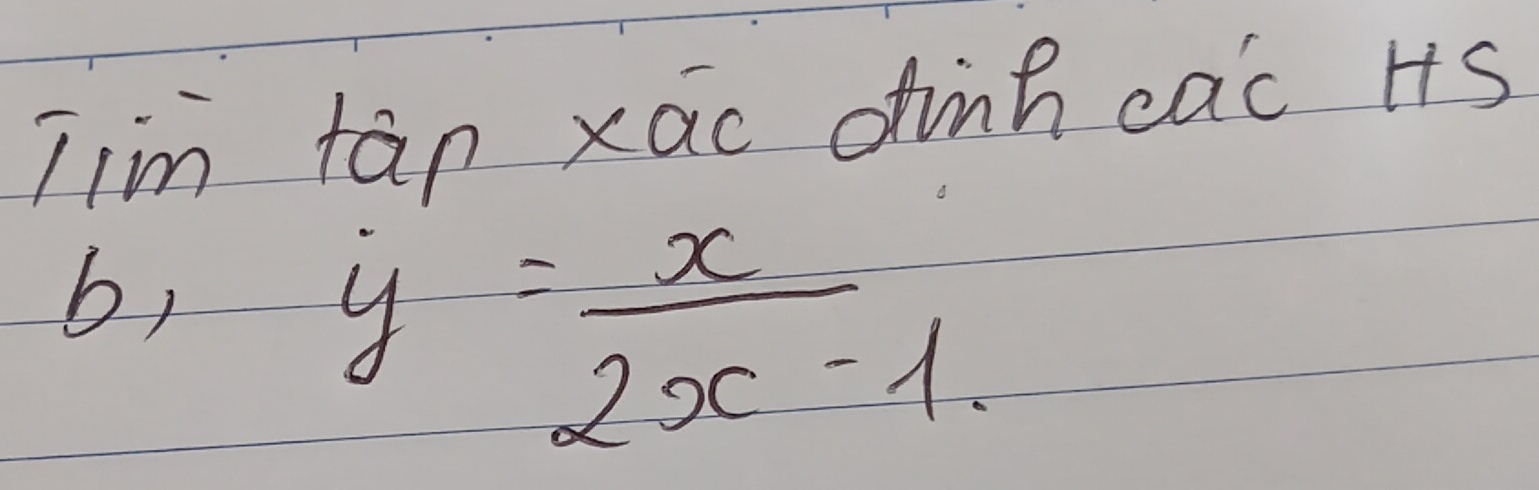 Tìm tập xác định các HS
b, y = x / 2x - 1.